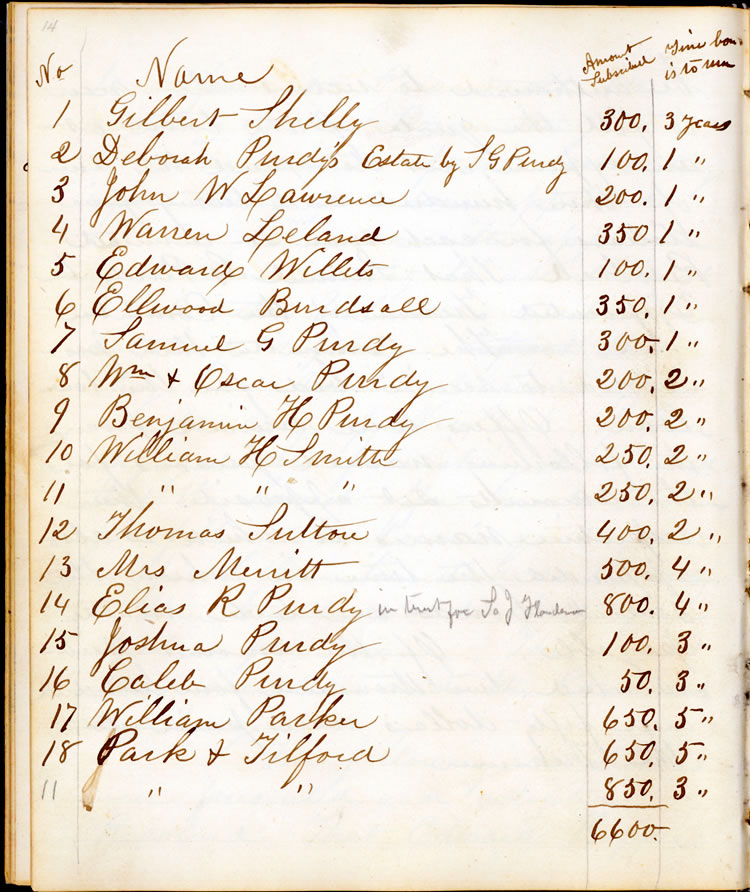 14
No Name Amount Subscribed Time bon is to run
1 Gilbert Shelly 300. 3 years
2 Deborah Purdy's Estate by S G Purdy 100. 1 "
3 John W Lawrence 200. 1 "
4 Warren Leland 350 1 "
5 Edward Willets 100. 1 "
6 Ellwood Burdsall 350. 1 "
7 Samuel G Purdy 300. 1 "
8 Wm & Oscar Purdy 200. 2 "
9 Benjamin H Purdy 200. 2 "
10 William H Smith 250. 2 "
11 " " " 250. 2 "
12 Thomas Sutton 400. 2 "
13 Mrs Merritt 500. 4 "
14 Elias R Purdy in trust for J 800. 4 "
15 Joshua Purdy 100. 3 "
16 Caleb Purdy 50. 3 "
17 William Parker 650. 5 "
18 Park & Tilford 650. 5 "
11 " " 850. 3 "
6600.